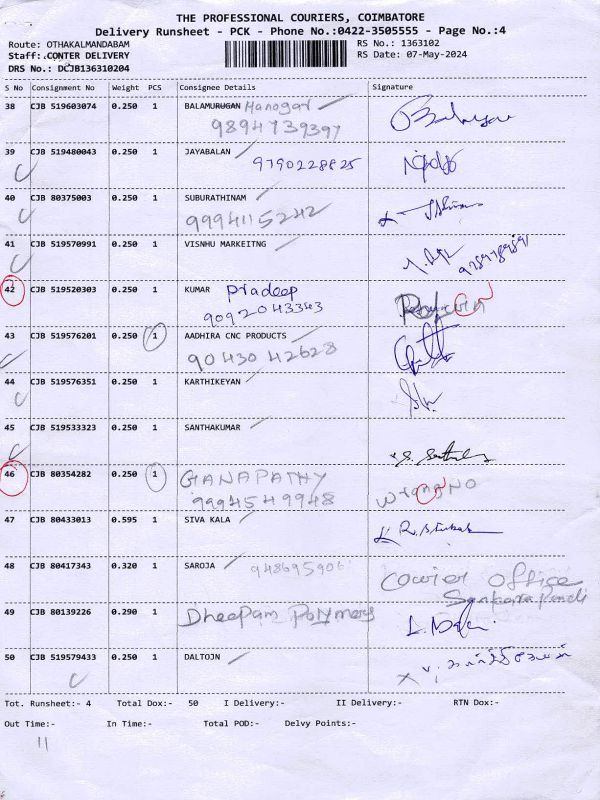 THE PROFESSIONAL COURIERS, COIMBATORE
Delivery Runsheet - PCK - Phone No.:0422-3505555 - Page No.:4
Route: OTHAKALMANDABAM RS No.: 1363102
Staff: CONTER DELIVERY RS Date: 07-May-2024
DRS No.: DCJB136310204
S No Consignment No Weight PCS Consignee Details Signature
38 CJB 519603074 0.250 1 BALAMURUGAN Manogar
9894739397
39 CJB 519480043 0.250 1 JAYABALAN
9790228825
40 CJB 80375003 0.250 1 SUBURATHINAM
9994115242
41 CJB 519570991 0.250 1 VISNHU MARKEITNG
42 CJB 519520303 0.250 1 KUMAR Pradeep
9092043343
43 CJB 519576201 0.250 1 AADHIRA CNC PRODUCTS
90430 42628
44 CJB 519576351 0.250 1 KARTHIKEYAN
45 CJB 519533323 0.250 1 SANTHAKUMAR
46 CJB 80354282 0.250 1 GANAPATHY
9994549948 Wrong NO
47 CJB 80433013 0.595 1 SIVA KALA
48 CJB 80417343 0.320 1 SAROJA 948695906 Courier Office
49 CJB 80139226 0.290 1 Dheepam Polymers
50 CJB 519579433 0.250 1 DALTOJN
Tot. Runsheet:- 4 Total Dox:- 50 I Delivery:- II Delivery:- RTN Dox:-
Out Time:- In Time:- Total POD:- Delvy Points:-
11